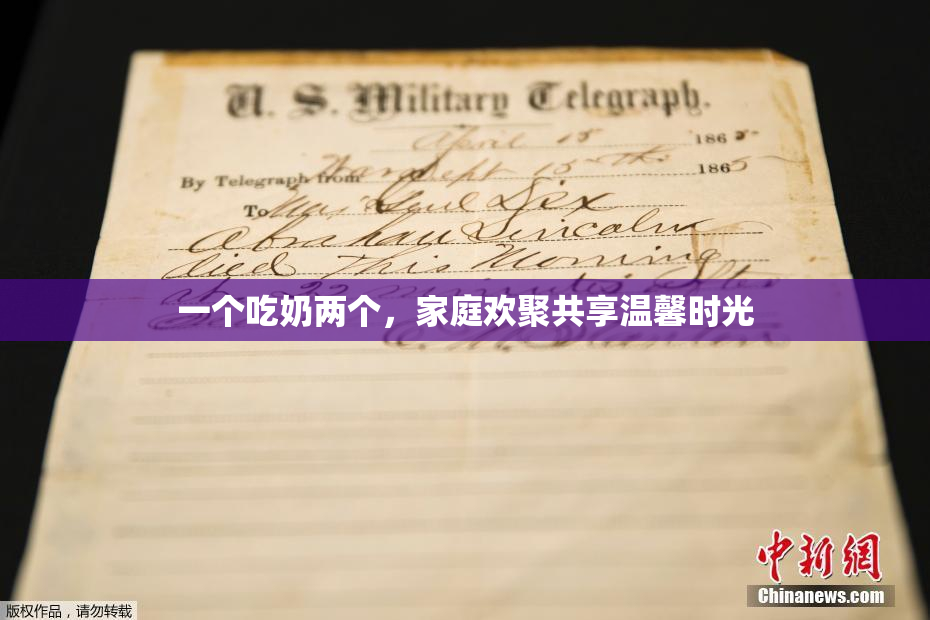 U. S. Military Telegraph.
April 15 1865
By Telegraph from War Dept 15th 1865
To Maj Genl Dix
Abraham Lincoln
died This Morning
at 22 minutes after
一个吃奶两个，家庭欢聚共享温馨时光
E. M. Stanton
中新網
Chinanews.com
版权作品，请勿转载